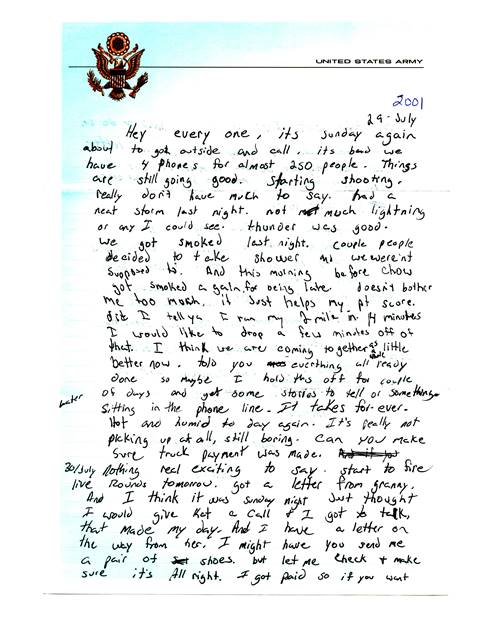 UNITED STATES ARMY
2001
29-July
Hey every one, its sunday again
about to got outside and call, its bad we
have 4 phones for almost 250 people. Things
are still going good. Starting shooting.
really don't have much to say. had a
neat storm last night. not much lightning
or any I could see. thunder was good.
we got smoked last night. couple people
decided to take shower and we wereint
supposed to. And this morning before chow
got smoked again for being late. doesn't bother
me too much, it Just helps my pt score.
did I tell ya I ran my 2 mile in 14 minutes
I would like to drop a few minutes off of
that. I think we are coming together as little
better now. told you everthing all ready
done so maybe I hold this off for couple
of days and get some stories to tell or something.
Later
Sitting in the phone line. It takes for-ever.
Hot and humid to day again. It's really not
picking up at all, still boring. Can you make
sure truck payment was made.
30/July Nothing real exciting to say. start to fire
live rounds tomorrow. got a letter from granny.
And I think it was sunday night Just thought
I would give Kat a call & I got to talk,
that made my day. And I have a letter on
the way from her. I might have you send me
a pair of shoes. but let me check & make
sure it's All right. I got paid so if you want